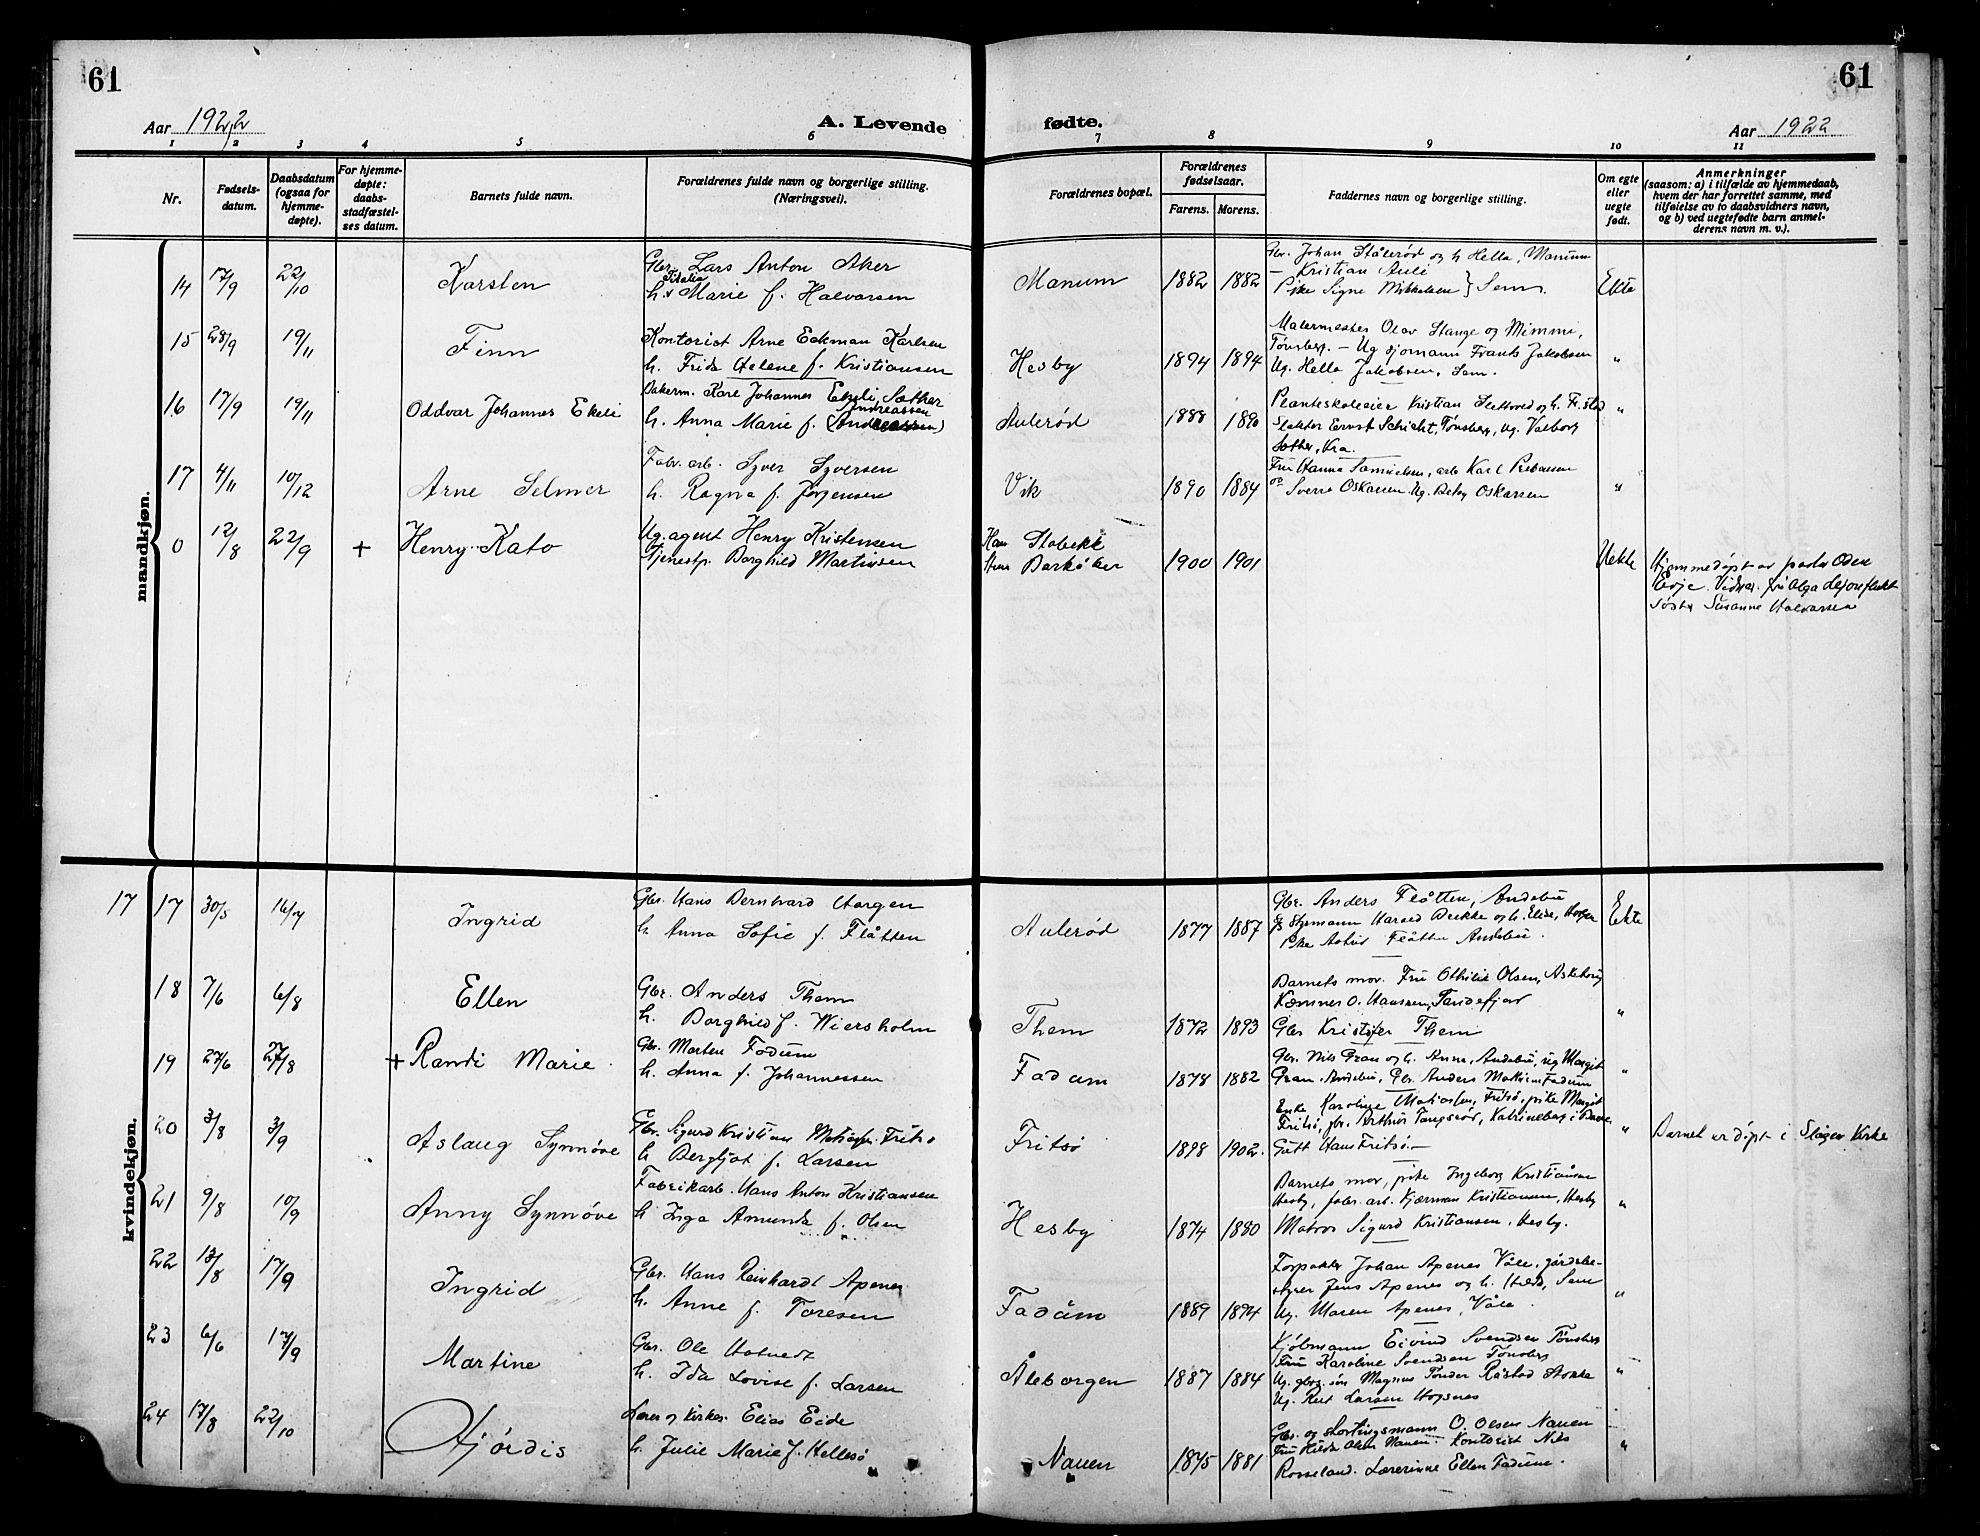 61
61
Aar 1922
A. Levende
fødte.
Aar 1922
1 2 3 4 5 6 7 8 9 10 11
Nr.
Fødsels-
datum.
Daabsdatum
(ogsaa for
hjemme-
døpte).
For hjemme-
døpte:
daabs-
stadfæstel-
ses datum.
Barnets fulde navn.
Forældrenes fulde navn og borgerlige stilling.
(Næringsvei).
Forældrenes bopæl.
Forældrenes
fødselsaar.
Farens. Morens.
Faddernes navn og borgerlige stilling.
Om egte
eller
uegte
født.
Anmerkninger
(saasom: a) i tilfælde av hjemmedaab,
hvem der har forrettet samme, med
tilføielse av to daabsvidners navn,
og b) ved uegtefødte barn anmel-
derens navn m. v.).
mandkjøn.
14 17/9 22/10 Karsten
Gbr. Lars Anton Aker
h. Marie f. Halvorsen
Manum 1882 1882
Gbr. Johan Stålerød og h Hella, Manum
– Kristian Auli
Pike Signe Mikkelsen } Sem.
Ekte
15 28/9 19/11 Finn
Kontorist Arne Eckman Karlsen
h. Frida Helene f. Kristiansen
Hesby 1894 1894
Malermester Olav Stange og Mimmi,
Tønsberg. – Ug sjømann Frants Jakobsen
Ug. Hella Jakobsen, Sem.
"
16 17/9 19/11 Oddvar Johannes Ekeli
Bakerm. Kare Johannes Ekeli Sæther
h. Anna Marie f. Andreassen
Aulerød 1888 1890
Planteskoleeier Kristian Slettvold og h. Fr.stad
Slakter Ernst Schicht, Tønsberg, ug. Valborg
Sæther, Kra.
"
17 4/11 10/12 Arne Selmer
Fabr. arb. Syver Syversen
h. Ragna f. Jørgensen
Vik 1890 1884
Fru Hanna Samuelsen, arb Karl
og Sverre Oskarsen Ug. Betsy Oskarsen
"
0 12/8 22/9 + Henry Kato
Ug. agent Henry Kristensen
Tjenestp. Borghild Martinsen
Han Stabekk
Hun Barkåker
1900 1901
Uekte
Hjemmedøpt av pastor Oden
Evje. Vidner. fru Olga
søster Susanne Halvorsen
kvindekjøn.
17 17 30/5 16/7 Ingrid
Gbr. Hans Bernhard Horgen
h. Anna Sofie f. Flåtten
Aulerød 1877 1887
Gbr. Anders Flåtten, Andebu
Styrmann Harald Bekke og h. Elise, Horgen
Pike Astrid Flåtten Andebu.
Ekte
18 7/6 6/8 Ellen
Gbr. Anders Them
h. Borghild f. Wiersholm
Them 1872 1893
Barnets mor. Fru Othilie Olsen, Askehoug
Kæmner O. Hanssen, Sandefjord
Gbr Kristofer Them
"
19 27/6 27/8 + Randi Marie
Gbr. Morten Fadum
h. Anna f. Johannessen
Fadum 1878 1882
Gbr. Nils Gran og h. Anna, Andebu, ug Margit
Gran. Andebu, Gbr. Anders Mathisen Fadum
"
20 3/8 3/9 Aslaug Synnøve
Gbr. Sigurd Kristian Fritsø
h Bergljot f. Larsen
Fritsø 1898 1902
Enke Karoline Matiassen, Fritsø, pike Margit
Fritsø, gbr. Arthur Tangsrød, Katrineberg i Borre
Gutt Hans Fritsø. –
"
Barnet er døpt i Slagen Kirke
21 9/8 10/9 Anny Synnøve
Fabrikarb. Hans Anton Kristiansen
h Inga Amunda f. Olsen
Hesby 1874 1880
Barnets mor, pike Ingeborg Kristiansen
Hesby, fabr. arb. Hjærman Kristiansen, Hesby
Matros Sigurd Kristiansen. Hesby.
"
22 13/8 17/9 Ingrid
Gbr. Hans Reinhardt Apenes
h. Anne f. Toresen
Fadum 1889 1894
Forpakter Johan Apenes Våle, gårdsbe-
styrer Jens Apenes og h. Sem
Ug. Maren Apenes, Våle.
"
23 6/6 17/9 Martine
Gbr. Ole Hotvedt
h. Ida Lovise f. Larsen
Åleborgen 1887 1884
Kjøbmann Eivind Svendsen Tønsberg
Fru Karoline Svendsen Tønsberg
Ug. gbr. søn Magnus Tønder Råstad Stokke
Ug. Rut Larsen Hogsnes
"
24 17/8 22/10 Hjørdis
Lærer og kirkes. Elias Eide
h. Julie Marie f. Hellesø
Nauen 1875 1881
Gbr. og stortingsmann O. Olsen Nauen
Fru Hilda Olsen Nauen. Kontorist Nils
Rosseland. Lærerinne Ellen Fadum.
"